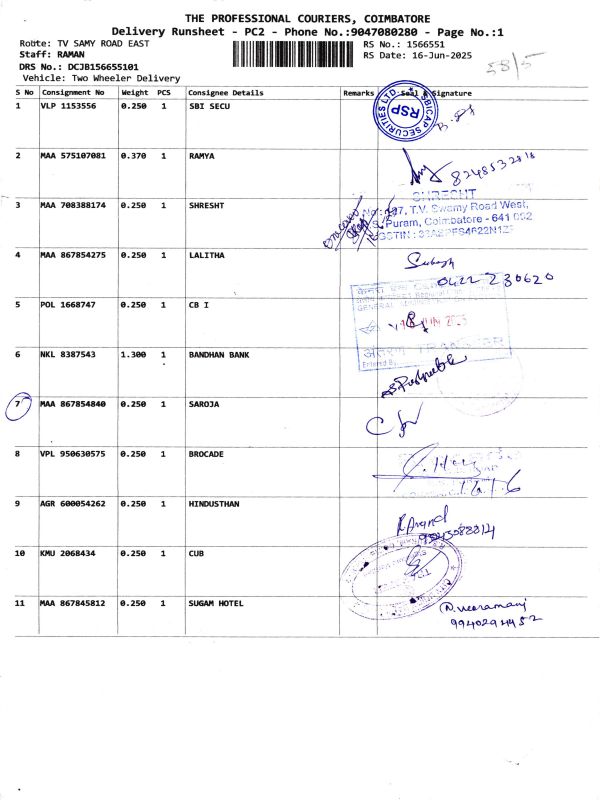 THE PROFESSIONAL COURIERS, COIMBATORE
Delivery Runsheet - PC2 - Phone No.:9047080280 - Page No.:1
Route: TV SAMY ROAD EAST
RS No.: 1566551
Staff: RAMAN
RS Date: 16-Jun-2025
58/5
DRS No.: DCJB156655101
Vehicle: Two Wheeler Delivery
S No Consignment No Weight PCS Consignee Details Remarks Seal & Signature
1 VLP 1153556 0.250 1 SBI SECU
SBICAP SECURITIES LTD.
RSP
2 MAA 575107081 0.370 1 RAMYA
8248532818
3 MAA 708388174 0.250 1 SHRESHT
SHRESHT
T.V. Swamy Road West,
Puram, Coimbatore - 641 002
4 MAA 867854275 0.250 1 LALITHA
Subash
0422 230620
5 POL 1668747 0.250 1 CB I
TRANSFER
Entered By
6 NKL 8387543 1.300 1 BANDHAN BANK
7 MAA 867854840 0.250 1 SAROJA
8 VPL 950630575 0.250 1 BROCADE
9 AGR 600054262 0.250 1 HINDUSTHAN
R Anand
10 KMU 2068434 0.250 1 CUB
11 MAA 867845812 0.250 1 SUGAM HOTEL
N. Veeramani
9940294452